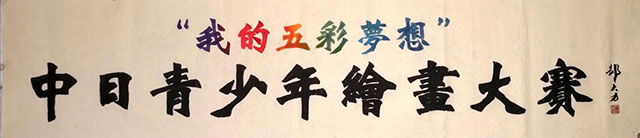 “我的五彩夢想”
中日青少年繪畫大賽